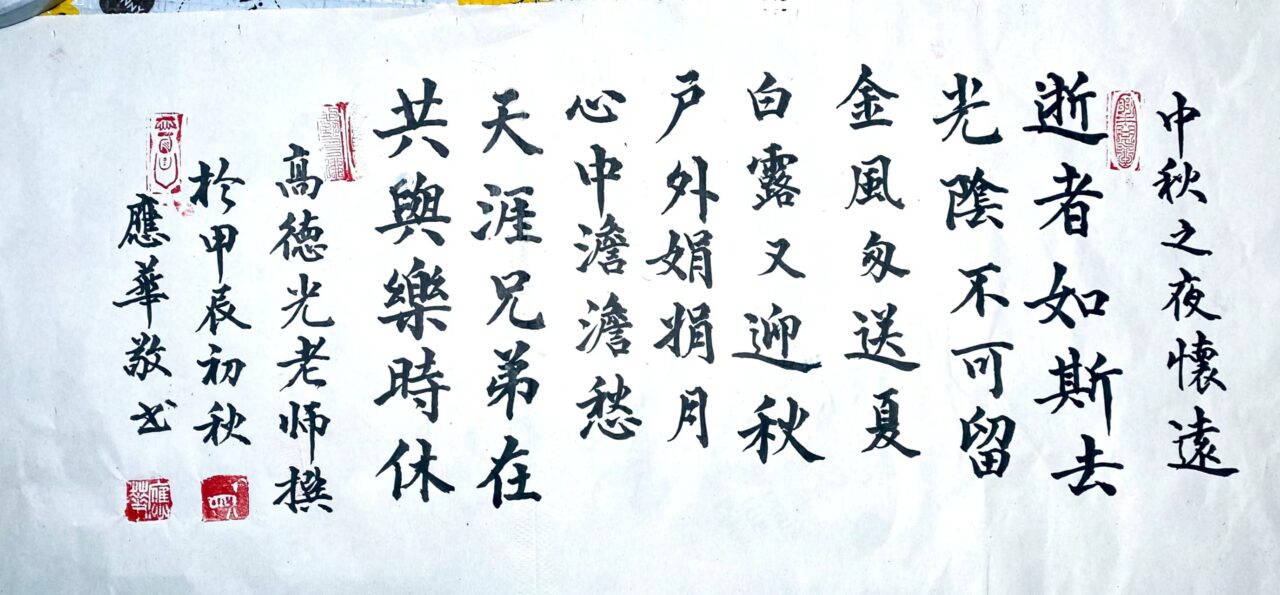 中秋之夜懷遠
逝者如斯去
光陰不可留
金風匆送夏
白露又迎秋
戶外娟娟月
心中澹澹愁
天涯兄弟在
共與樂時休
高德光老师撰
於甲辰初秋
應華敬书
應華